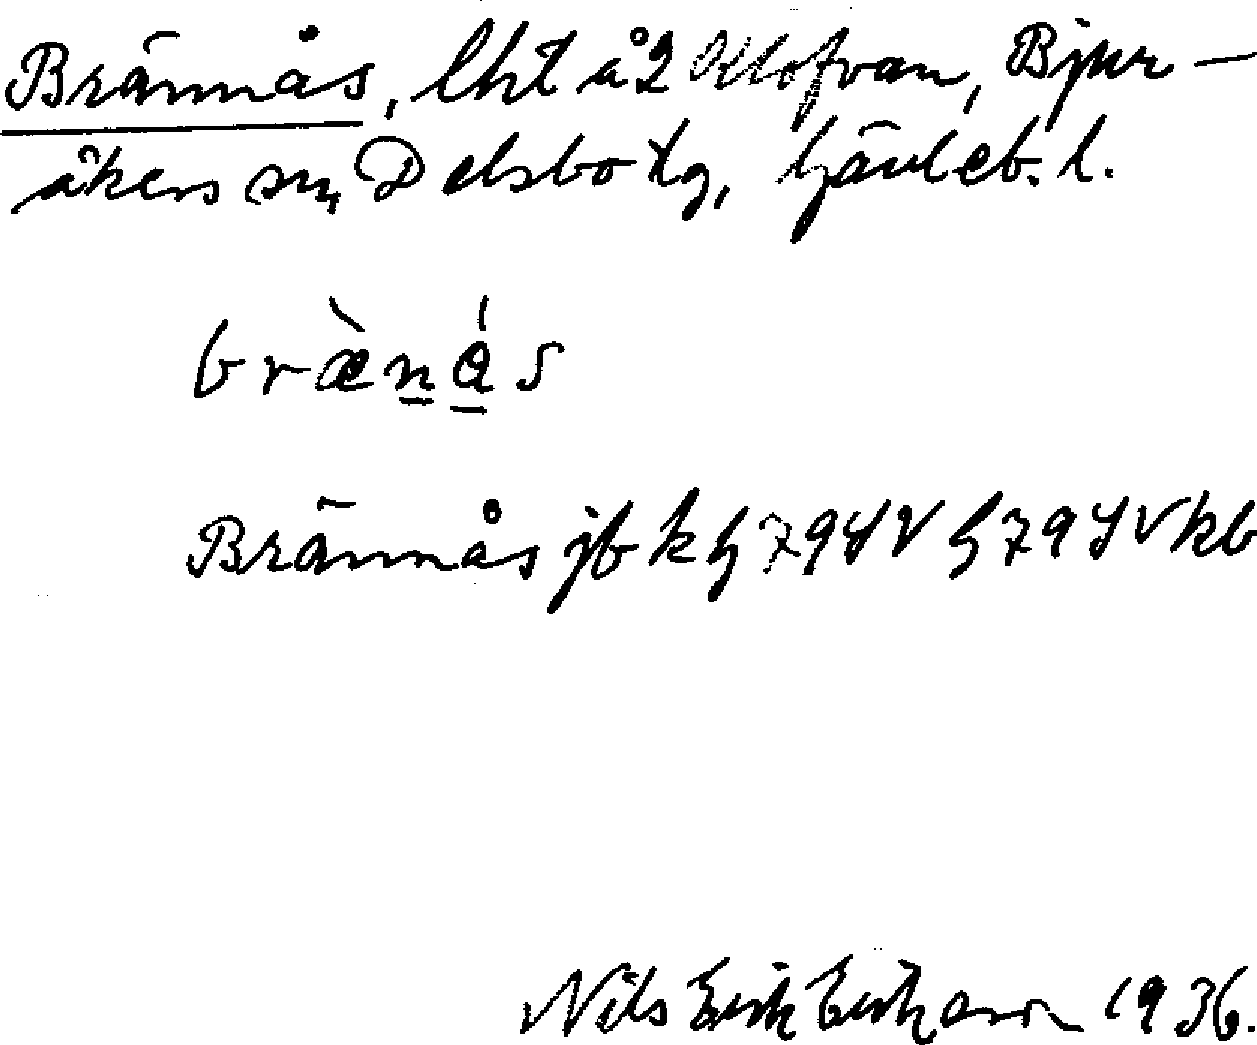 Brännås, lht å 2 Klofvan, Bjur-
åkers sn, Delsbo tg, Gävleb. l.
bræ̀ṉá̱s
Brännås jb k
Nils Erik Eriksson 1936.